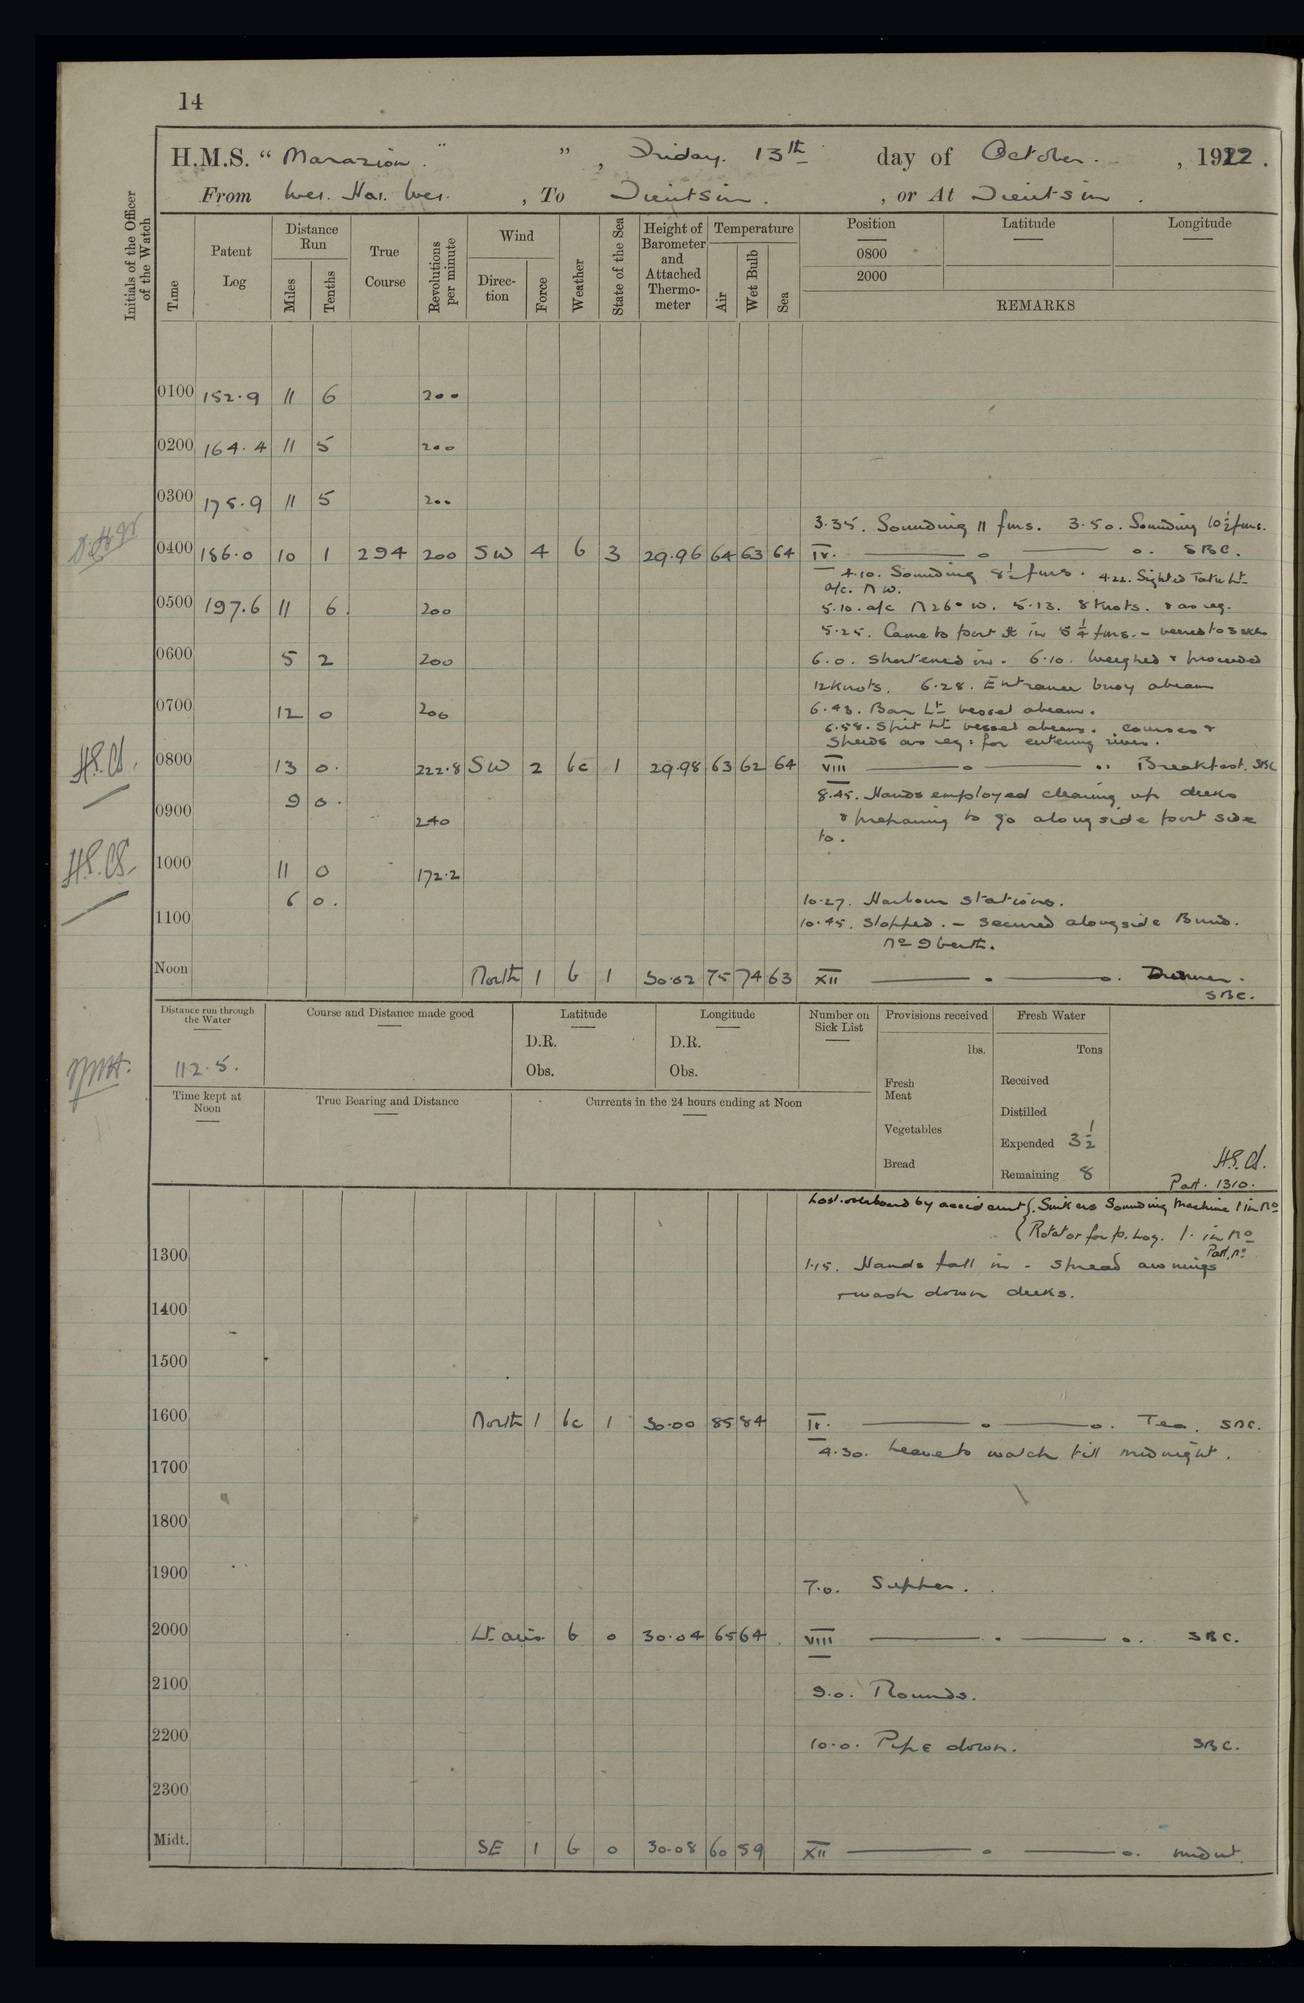 14
H.M.S. “ Marazion. ” , Friday. 13th day of October. , 1922 .
From Wei. Hai. Wei. , To Tientsin . , or At Tientsin .
Initials of the Officer of the Watch
Time
Patent Log
Distance Run
Miles
Tenths
True Course
Revolutions per minute
Wind
Direction
Force
Weather
State of the Sea
Height of Barometer and Attached Thermometer
Temperature
Air
Wet Bulb
Sea
Position
Latitude
Longitude
0800
2000
REMARKS
0100 152.9 11 6 200
0200 164.4 11 5 200
0300 175.9 11 5 200
3.35. Sounding 11 fms. 3.50. Sounding 10½ fms.
0400 186.0 10 1 294 200 SW 4 b 3 29.96 64 63 64 IV. o o. SBC.
4.10. Sounding 8½ fms. 4.22. Sighted Taku Lt
a/c. NW.
0500 197.6 11 6. 200 5.10. a/c N26°W. 5.13. 8 Knots. & as req.
5.25. Came to port in 5¼ fms. - veered to 3
0600 5 2 200 6.0. Shortened in. 6.10. Weighed & proceeded
12 Knots. 6.28. Entrance buoy abeam
0700 12 0 200 6.43. Bar Lt vessel abeam.
6.58. Spit Lt vessel abeam. Courses &
Speeds as req: for entering river.
H.S.Cl. 0800 13 0. 222.8 SW 2 bc 1 29.98 63 62 64 VIII o .. Breakfast. SBC
9 0. 8.45. Hands employed cleaning up decks
0900 240 & preparing to go alongside port side
to.
H.S.Cl. 1000 11 0 172.2
6 0. 10.27. Harbour Stations.
1100 10.45. Stopped. - Secured alongside Bund.
No 9 berth.
Noon North 1 b 1 30.02 75 74 63 XII o o. Dinner.
SBC.
Distance run through the Water
Course and Distance made good
Latitude
Longitude
Number on Sick List
Provisions received
Fresh Water
D.R. D.R.
lbs. Tons
112.5.
Obs. Obs.
Fresh Meat
Received
Time kept at Noon
True Bearing and Distance
Currents in the 24 hours ending at Noon
Distilled
Vegetables
Expended 3½
Bread
Remaining 8
H.S.Cl.
Part. 1310.
Lost overboard by accident {Sinkers Sounding Machine 1 in No
(Rotator for p. Log. 1. in No
Patt. No
1300 1.15. Hands fall in - spread awnings
& wash down decks.
1400
1500
1600 North 1 bc 1 30.00 85 84 IV. o o. Tea. SBC.
4.30. Leave to watch till midnight.
1700
1800
1900 7.0. Supper.
2000 Lt airs b 0 30.04 65 64 VIII . o. SBC.
2100 9.0. Rounds.
2200 10.0. Pipe down. SBC.
2300
Midt. SE 1 b 0 30.08 60 59 XII o o. midnt.